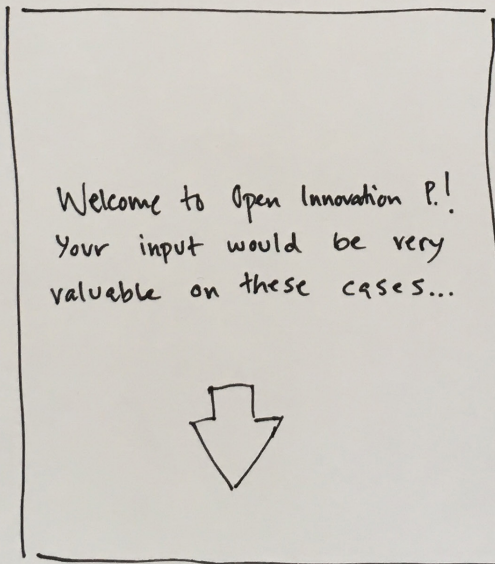 Welcome to Open Innovation P.!
Your input would be very
valuable on these cases...